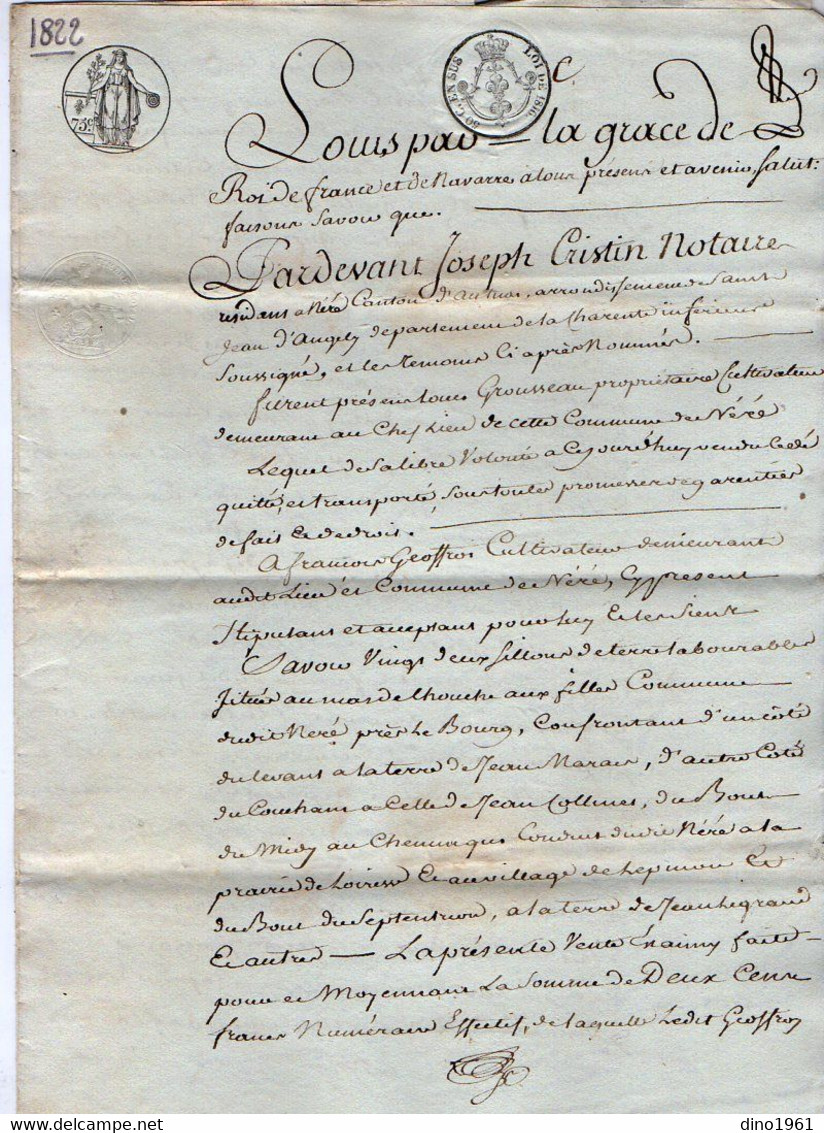 1822
75.C
50 C. EN SUS
LOI DE 1816
Louis par la grace de D
Roi de france et de Navarre a tous présens et avenir, Salut:
faisons Savoir que.
Pardevant Joseph Cristin Notaire
residans a Néré Canton d'Aulnai, arrondissement de Saint
Jean d'Angely departement de la Charente inferieure
Soussigné, et les Temoins Ci après Nommés.
fut present Louis Grousseau propriétaire Cultivateur
demeurant au Chef Lieu de cette Commune de Néré
Lequel de Sa libre Volonté a Cejourd'huy vendu Cedé
quitté, et transporté, Sous toutes promesses de garenties
de fait et de droit.
A francois Geoffroi Cultivateur demeurant
audit Lieu et Commune de Néré, Cy present
Stipulans et acceptans pour luy Et les Siens
Savoir Vingt deux Sillons de terre labourables
Situés au mas de Lhouche aux filles Commune
dudit Néré près Le Bourg, Confrontant d'un côté
du levant a la terre de Jean Marais, d'autre Coté
du Couchant a Celle de Jean Collines, du Bout
du Midy au Chemin qui Conduit dudit Néré a la
prairie de Loirese Et au village de Et
du Bout du Septentrion, a la terre de Jean Legrand
Et autres — La présente Vente Ainsy faite
pour et Moyennant La Somme de Deux Cens
francs Numéraire Effectif, de laquelle Ledit Geoffroy
dino1961